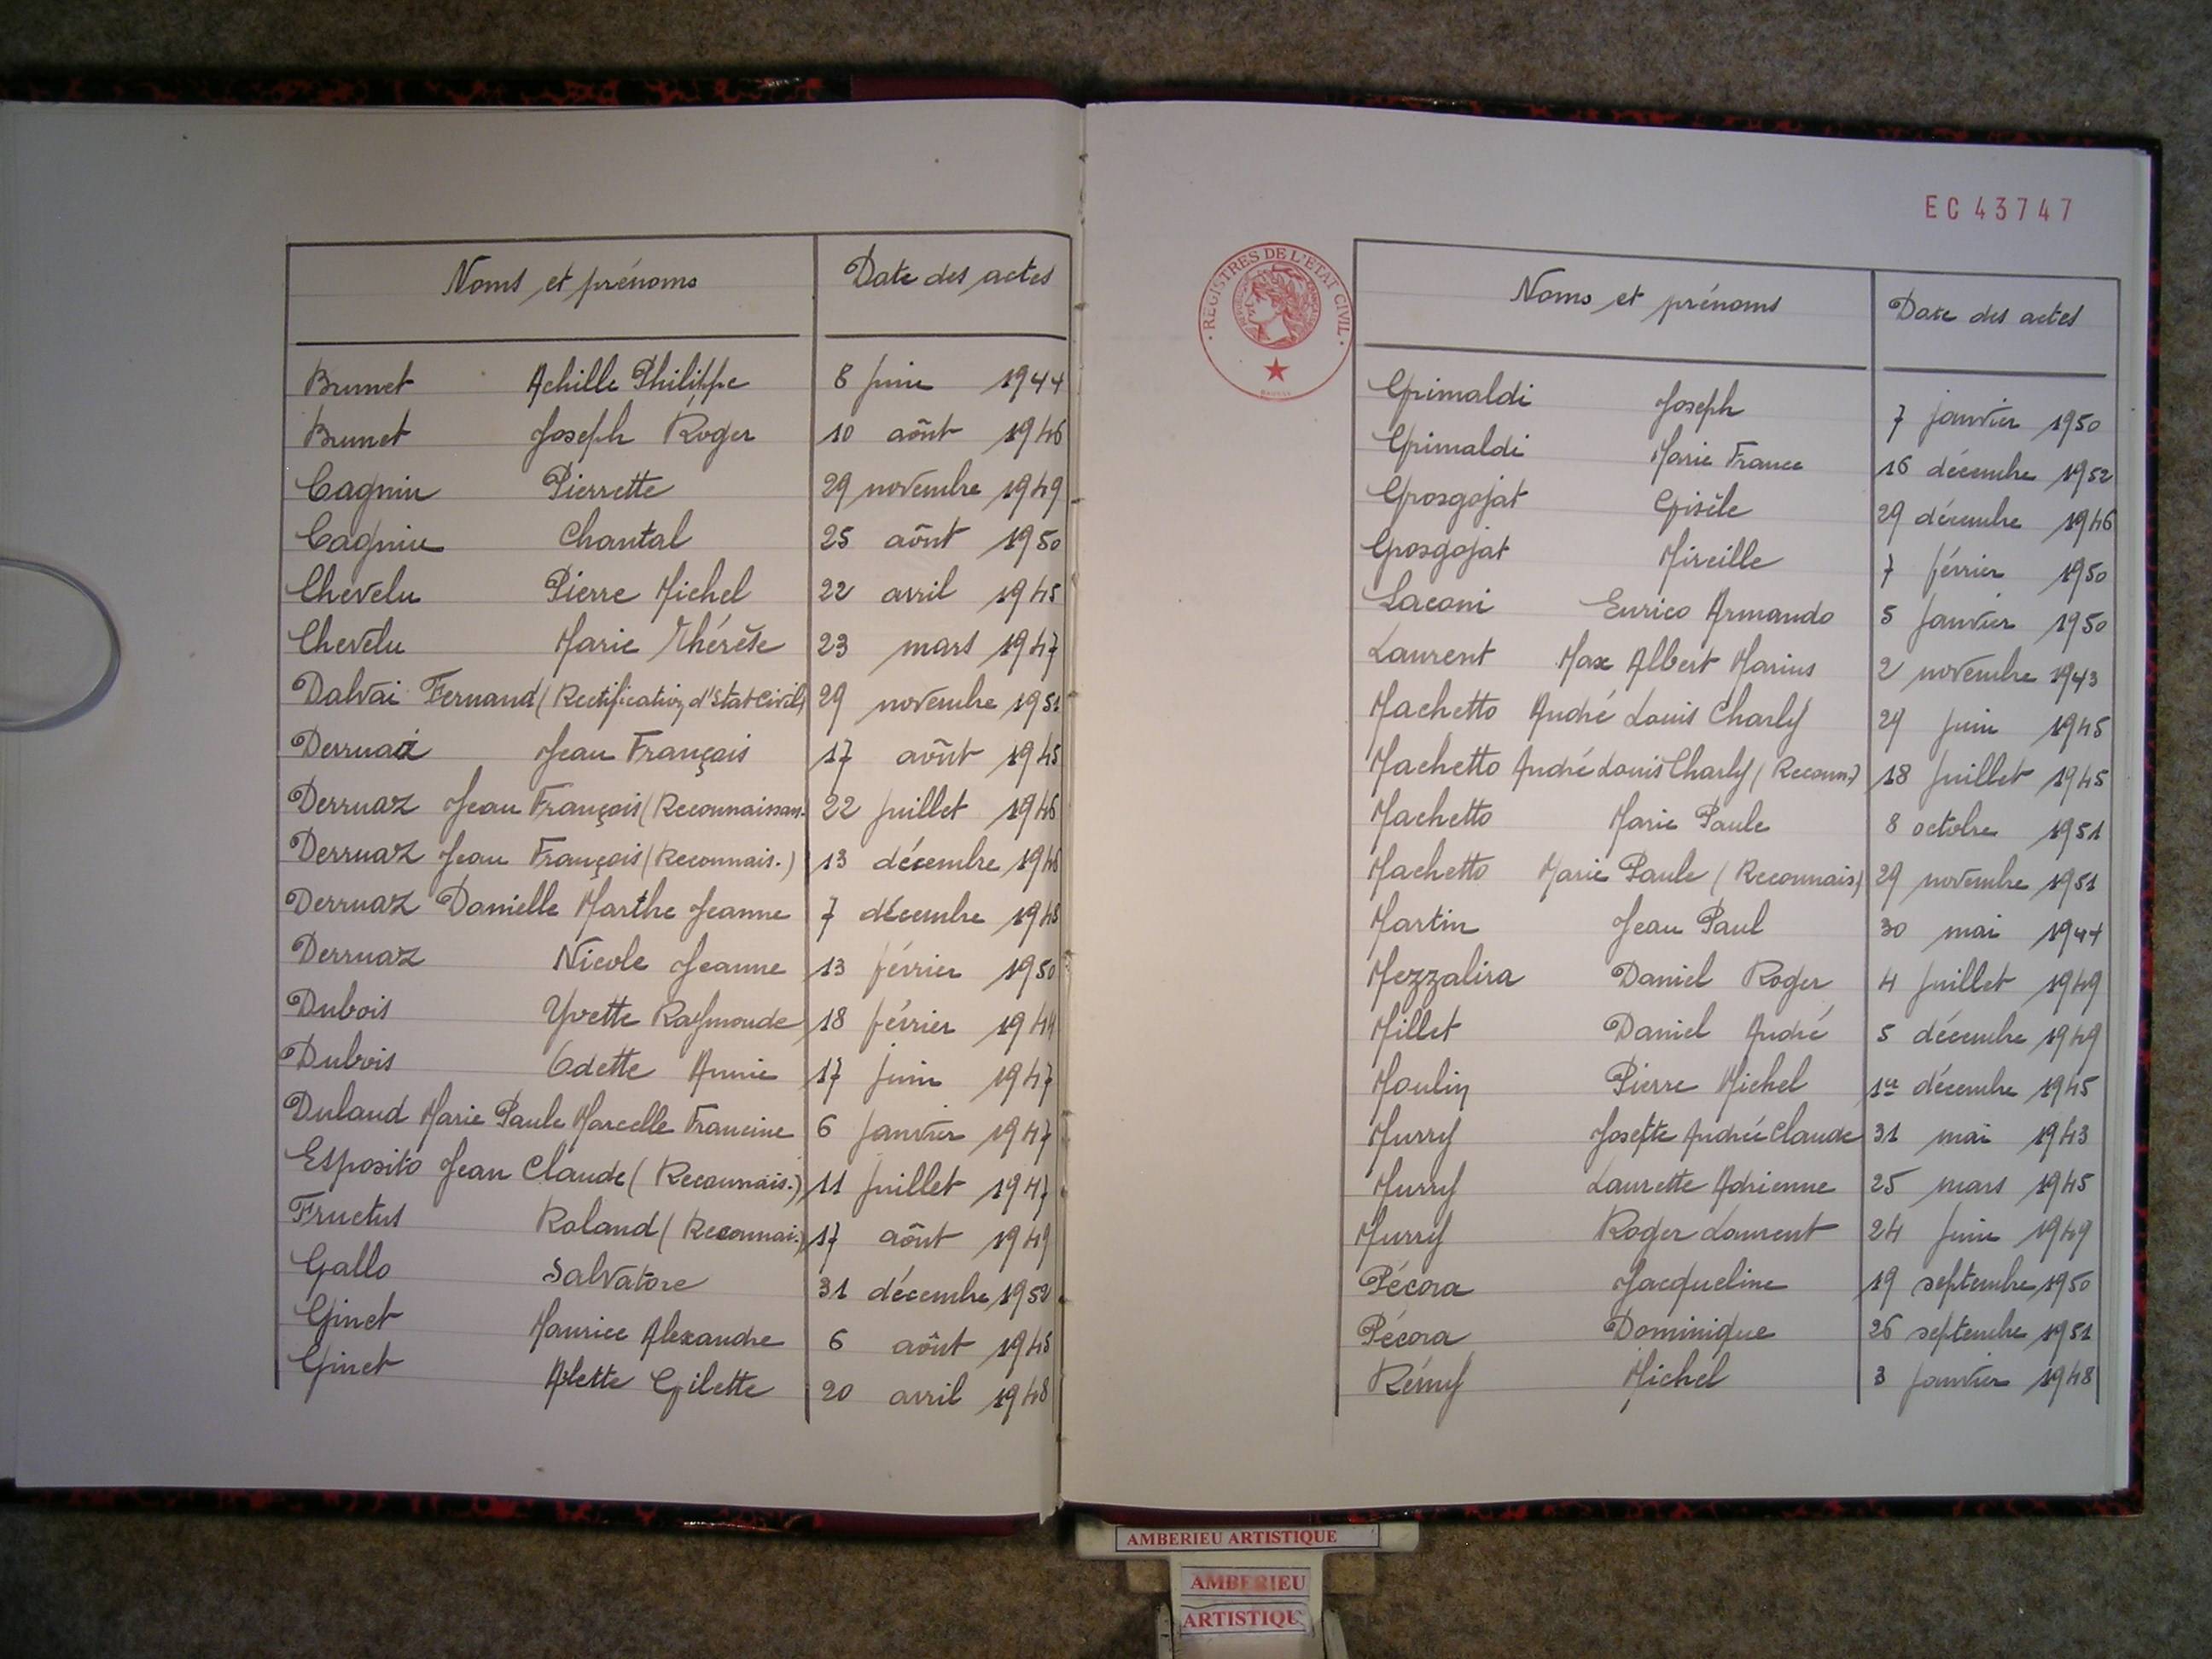 Noms et prénoms Date des actes
Brunet Achille Philippe 8 juin 1944
Brunet Joseph Roger 10 août 1946
Cagnin Pierrette 29 novembre 1949
Cagnin Chantal 25 août 1950
Chevelu Pierre Michel 22 avril 1945
Chevelu Marie Thérèse 23 mars 1947
Dalvai Fernand (Rectification d'Etat Civil) 29 novembre 1951
Derruaz Jean François 17 août 1945
Derruaz Jean François (Reconnaissan. 22 juillet 1946
Derruaz Jean François (Reconnais.) 13 décembre 1946
Derruaz Danielle Marthe Jeanne 7 décembre 1948
Derruaz Nicole Jeanne 13 février 1950
Dubois Yvette Raymonde 18 février 1944
Dubois Odette Annie 17 juin 1947
Duland Marie Paule Marcelle Francine 6 janvier 1947
Esposito Jean Claude (Reconnais.) 11 juillet 1947
Fructus Roland (Reconnai.) 17 août 1949
Gallo Salvatore 31 décembre 1952
Ginet Maurice Alexandre 6 août 1945
Ginet Arlette Gilette 20 avril 1948
EC 43747
· REGISTRES DE L'ETAT CIVIL ·
Noms et prénoms Date des actes
Grimaldi Joseph 7 janvier 1950
Grimaldi Marie France 16 décembre 1952
Grosgojat Gisèle 29 décembre 1946
Grosgojat Mireille 7 février 1950
Laconi Eurico Armando 5 janvier 1950
Laurent Max Albert Marius 2 novembre 1943
Machetto André Louis Charly 24 juin 1945
Machetto André Louis Charly (Reconn.) 18 juillet 1945
Machetto Marie Paule 8 octobre 1951
Machetto Marie Paule (Reconnais) 29 novembre 1951
Martin Jean Paul 30 mai 1944
Mezzalira Daniel Roger 4 juillet 1949
Millet Daniel André 5 décembre 1949
Moulin Pierre Michel 1er décembre 1945
Murry Josette Andrée Claude 31 mai 1943
Murry Laurette Adrienne 25 mars 1945
Murry Roger Laurent 24 juin 1949
Pécora Jacqueline 19 septembre 1950
Pécora Dominique 26 septembre 1951
Rémy Michel 3 janvier 1948
AMBERIEU ARTISTIQUE
AMBERIEU
ARTISTIQU